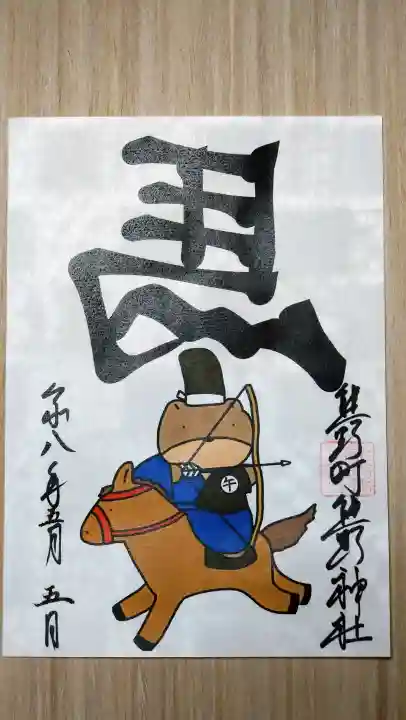 馬
熊野町熊野神社
午
令和八年五月五日